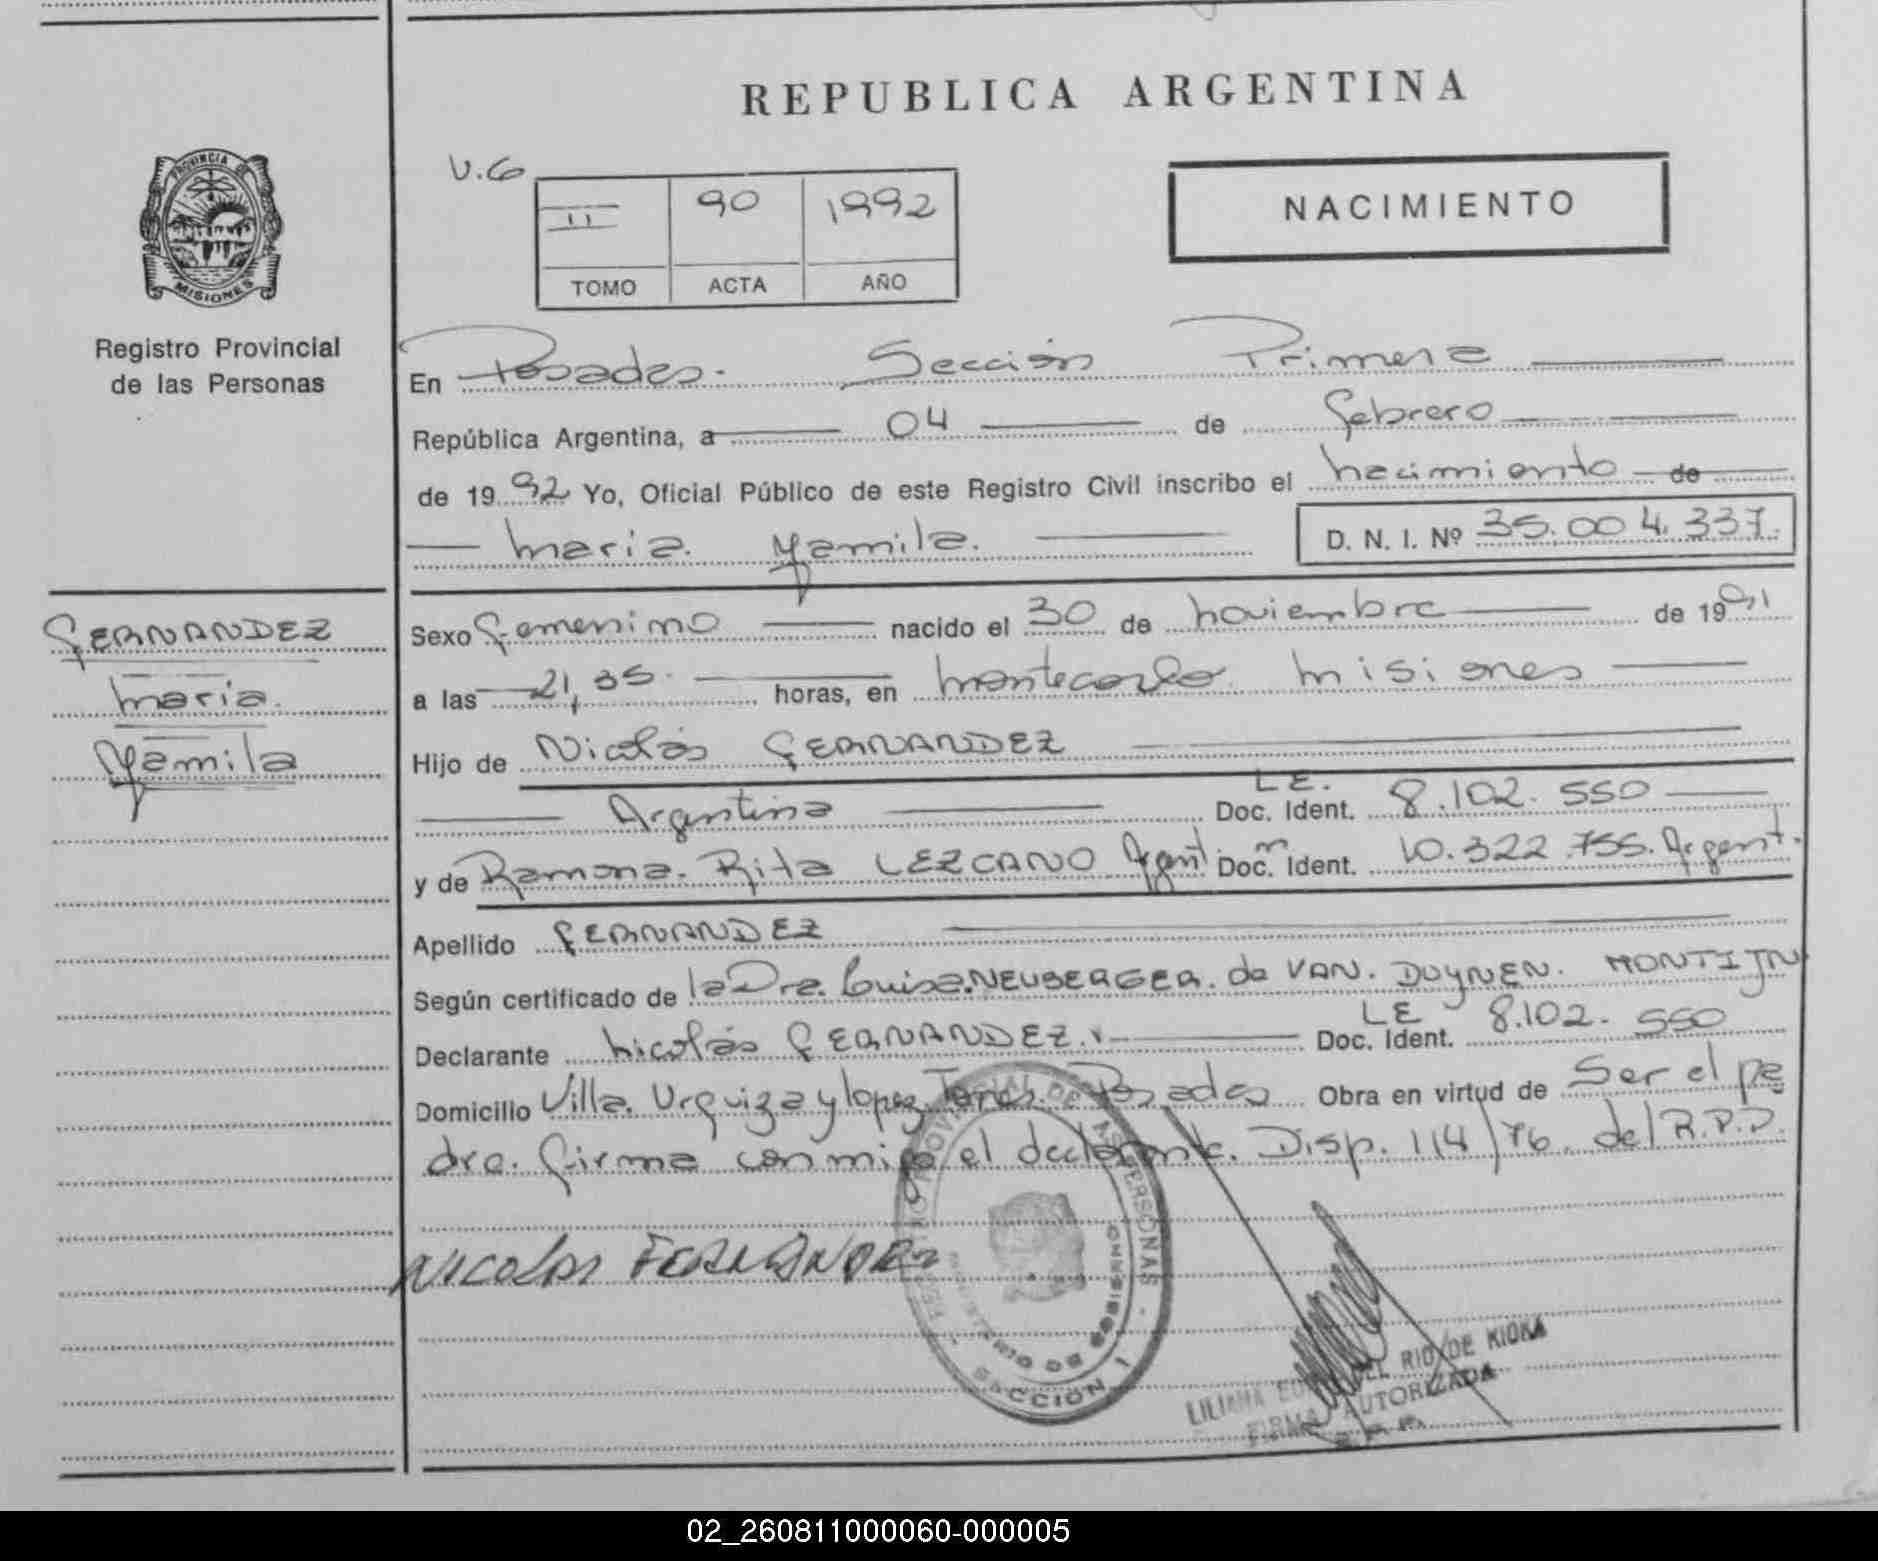 REPUBLICA ARGENTINA
V.G
II 90 1992
TOMO ACTA AÑO
NACIMIENTO
PROVINCIA DE
MISIONES
Registro Provincial
de las Personas
En Posadas. Sección Primera
República Argentina, a 04 de febrero
de 1992 Yo, Oficial Público de este Registro Civil inscribo el nacimiento de
Maria Yamila.
D. N. I. Nº 35.004.337.
FERNANDEZ
Maria
Yamila
Sexo femenino nacido el 30 de noviembre de 1991
a las 21,35. horas, en Montecarlo Misiones
Hijo de Nicolás FERNANDEZ
Argentina LE. Doc. Ident. 8.102.550
y de Ramona Rita LEZCANO Argent. Doc. Ident. 10.322.755. Argent.
Apellido FERNANDEZ
Según certificado de la Dra. Luisa NEUBERGER de VAN. DUYNEN. MONTIJN
Declarante Nicolás FERNANDEZ. LE Doc. Ident. 8.102.550
Domicilio Villa Urquiza y lopez Torres. Posadas Obra en virtud de Ser el pa
dre. firma conmigo el declarante. Disp. 114/76. del R.P.P.
NICOLAS FERNANDEZ
PERSONAS
SECCION 1
LILIANA DEL RIO DE KIOKA
FIRMA AUTORIZADA
02_260811000060-000005